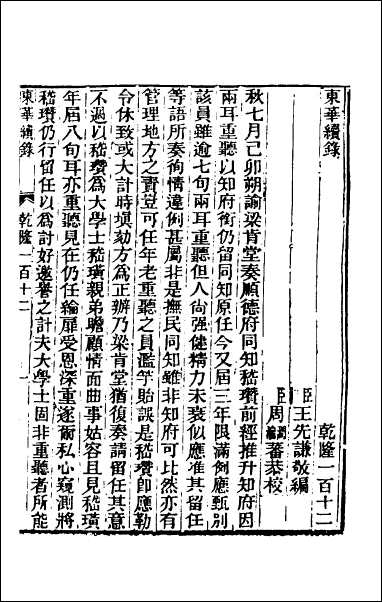 東華續錄
乾隆一百十二
臣王先謙敬編
臣周蕃恭校
秋七月己卯朔諭梁肯堂奏順德府同知嵇瓚前經推升知府因
兩耳重聽以知府銜仍留同知原任今又屆三年限滿例應甄別
該員雖逾七旬兩耳重聽但人尚强健精力未衰似應准其留任
等語所奏徇情違例甚屬非是撫民同知雖非知府可比然亦有
管理地方之責豈可任年老重聽之員濫竽貽誤是嵇瓚即應勒
令休致或大計時塡劾方爲正辦乃梁肯堂猶復奏請留任其意
不過以嵇瓚爲大學士嵇璜親弟瞻顧情面曲事姑容且見嵇璜
年屆八旬耳亦重聽見在仍任綸扉受恩深重逐爾私心窺測將
嵇瓚仍行留任以爲討好邀譽之計夫大學士固非重聽者所能
東華續錄
乾隆一百十二
一